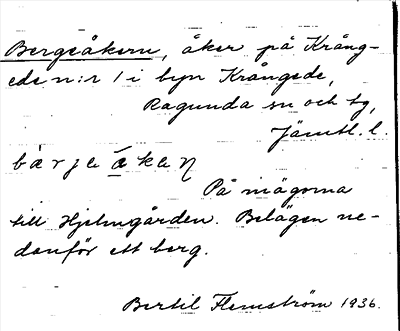 Bergsåkern, åker på Krång-
ede n:r 1 i byn Krångede,
Ragunda sn och tg,
Jämtl. l.
På inägorna
till Hjelmgården. Belägen ne-
danför ett berg.
Bertil Flemström 1936.